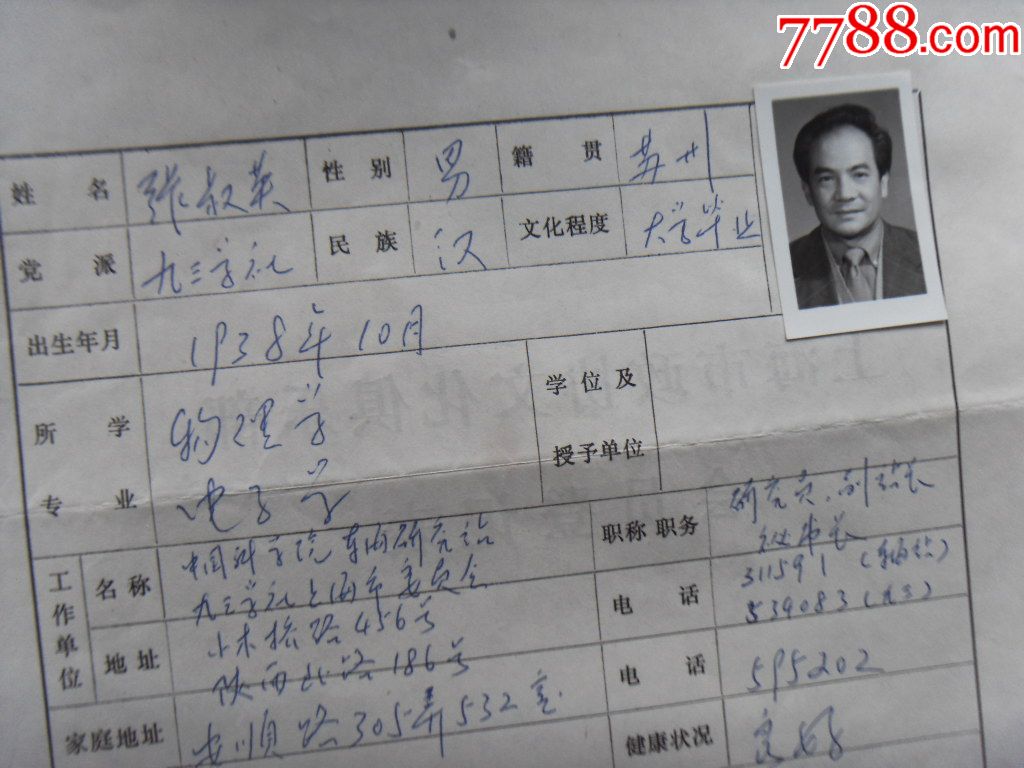 7788.com
姓名 张叔英 性别 男 籍贯 苏州
党派 九三学社 民族 汉 文化程度 大学毕业
出生年月 1938年10月
所学专业 物理学 学位及授予单位
电子学
工作单位 名称 中国科学院东海研究站 职称职务 研究员、副站长
九三学社上海市委员会 秘书长
地址 小木桥路456号 电话 311591(东海站)
陕西北路186号 539083(九三)
家庭地址 安顺路305弄532室 电话 595202
健康状况 良好